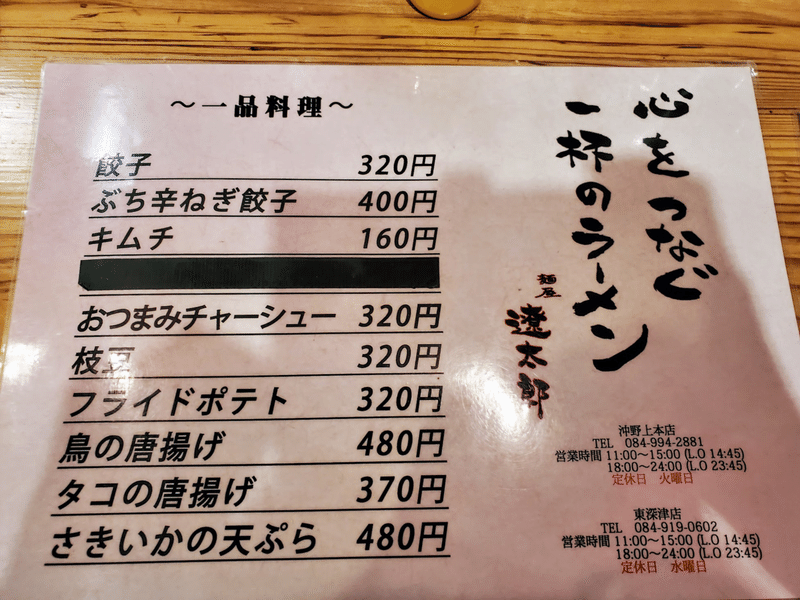 ～一品料理～
餃子 320円
ぶち辛ねぎ餃子 400円
キムチ 160円
おつまみチャーシュー 320円
枝豆 320円
フライドポテト 320円
鳥の唐揚げ 480円
タコの唐揚げ 370円
さきいかの天ぷら 480円
心をつなぐ
一杯のラーメン
麺屋
遼太郎
沖野上本店
TEL 084-994-2881
営業時間 11:00～15:00 (L.O 14:45)
18:00～24:00 (L.O 23:45)
定休日 火曜日
東深津店
TEL 084-919-0602
営業時間 11:00～15:00 (L.O 14:45)
18:00～24:00 (L.O 23:45)
定休日 水曜日